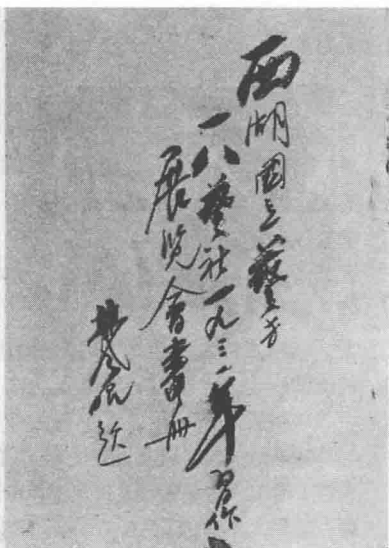 西湖國立藝專
一八藝社一九三一年習作
展覽會畫冊
林風眠題